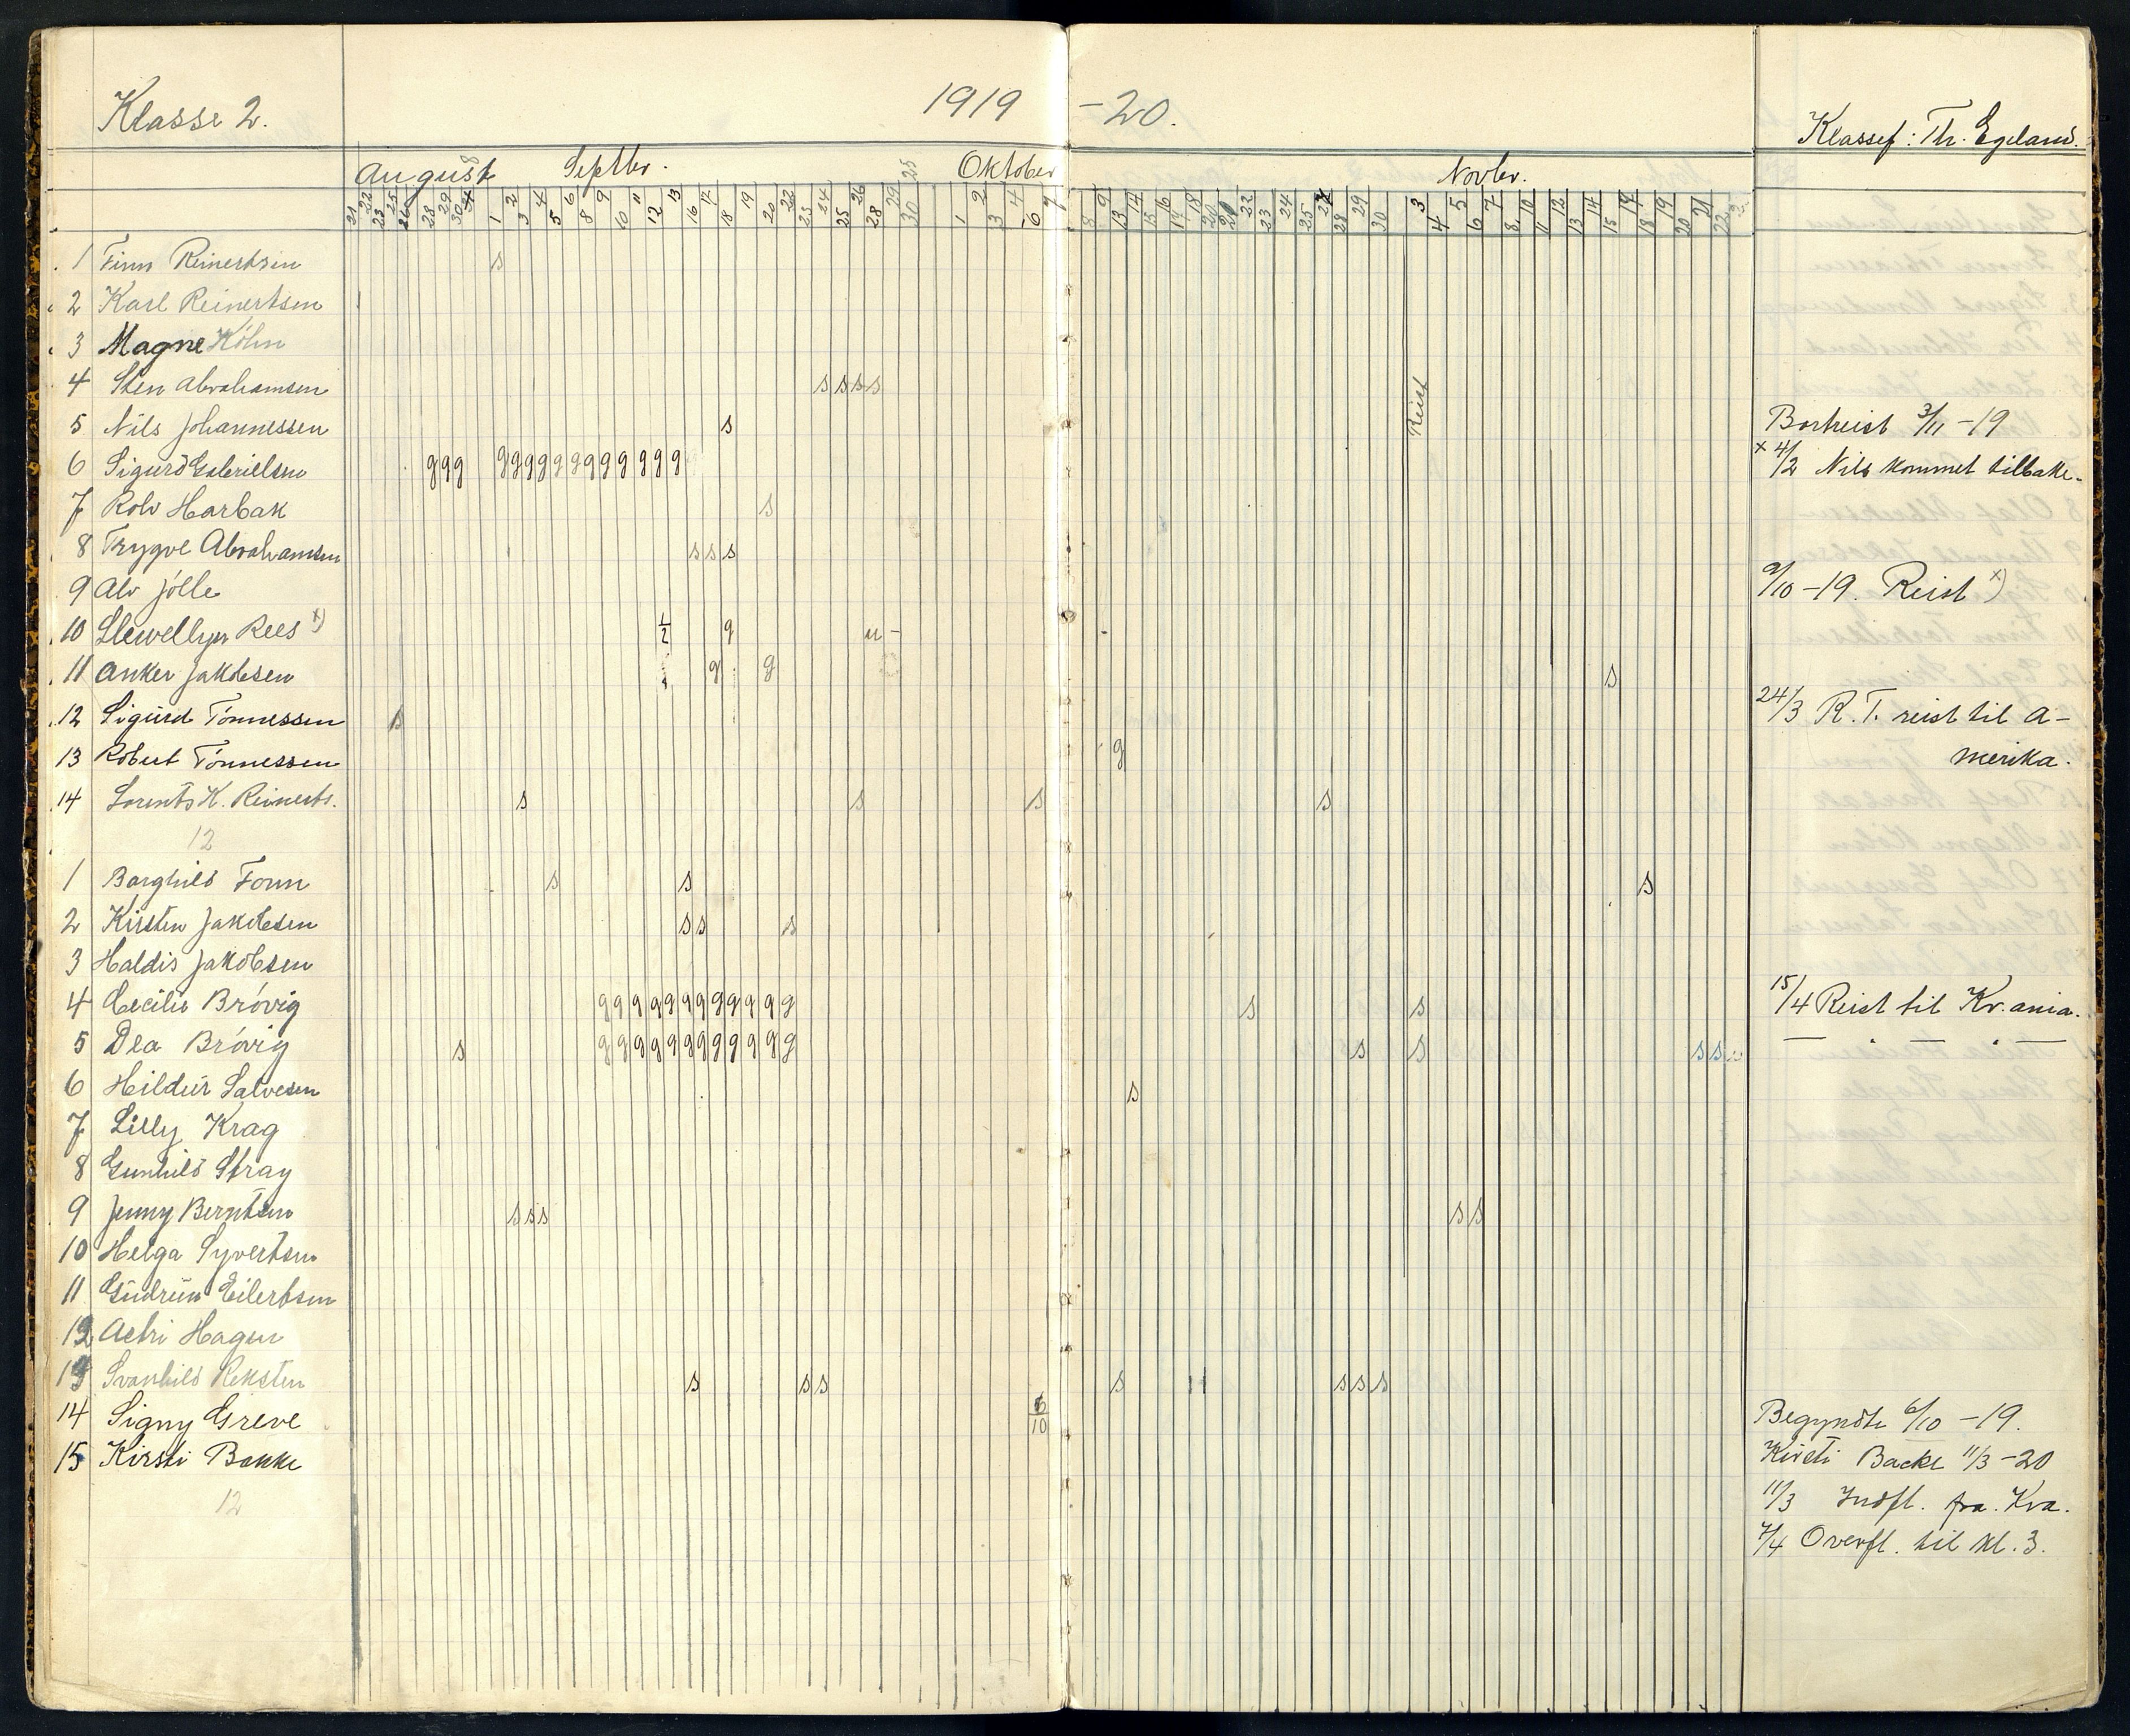 Klasse 2. 1919 -20.
Klassef: Th. Egeland.
August Septbr. Oktober Novbr.
21 22 23 25 26 28 29 30 1 2 3 4 5 6 8 9 10 11 12 13 16 17 18 19 20 22 23 24 25 26 28 29 30 1 2 3 4 6 7 8 9 13 14 15 16 17 18 20 21 22 23 24 25 27 28 29 30 3 4 5 6 7 8 10 11 12 13 14 15 17 18 19 20 21 22
1 Finn Reinertsen s
2 Karl Reinertsen
3 Magne Köhn
4 Sten Abrahamsen s s s s
Reist
5 Nils Johannessen s Bortreist 3/11 -19
6 Sigurd Gabrielsen g g g g g g g g g g g g g g g x 4/2 Nils kommet tilbake.
7 Rolv Harbak s
8 Trygve Abrahamsen s s s
9 Alv Jölle 9/10 -19. Reist x)
10 Llewellyn Rees x) 1/2 g u -
11 Anker Jakobsen g g s
12 Sigurd Tönnessen s 24/3 R. T. reist til A-
13 Robert Tönnessen g merika.
14 Lorents K. Reinerts. s s s s
12
1 Borghild Fonn s s s
2 Kirsten Jakobsen s s s
3 Haldis Jakobsen
4 Cecilie Brövig g g g g g g g g g g g g s s 15/4 Reist til Kr.ania.
5 Dea Brövig s g g g g g g g g g g g g s s s s — . — . —
6 Hildur Salvesen s
7 Lilly Krag
8 Gunhild Stray
9 Jenny Berntsen s s s s s
10 Helga Syvertsen
11 Gudrun Eilertsen
12 Astri Hagen
13 Svanhild Reksten s s s s s s s
14 Signy Greve 6/10 Begyndte 6/10 -19.
15 Kirsti Bakke Kirsti Backe 11/3 -20
12 11/3 Indfl. fra Kra.
7/4 Overfl. til kl. 3.